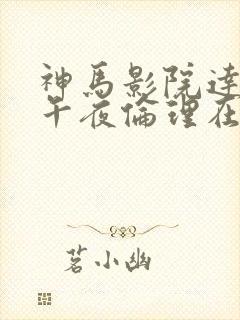 神馬影院達
午夜倫理在
茗小幽